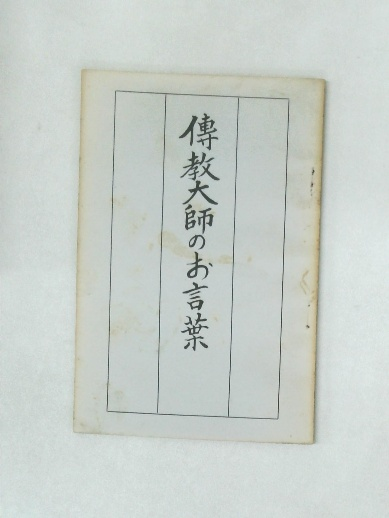 傳教大師のお言葉